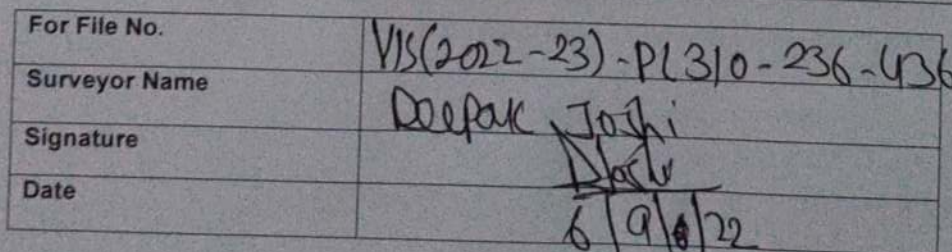 For File No. VIS(2022-23)-PL310-236-436
Surveyor Name Deepak Joshi
Signature DJoshi
Date 6/9/22